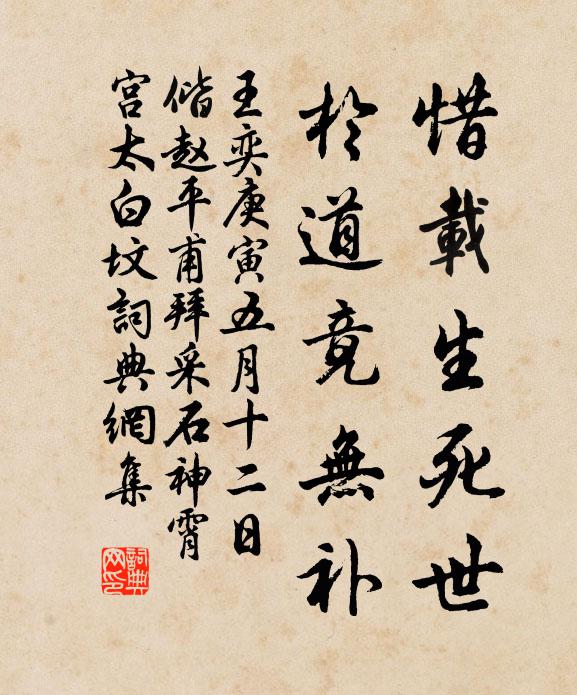 惜載生死世
於道竟無补
王奕庚寅五月十二日
偕赵平甫拜采石神霄
宫太白坟詞典網集
詞典
网印